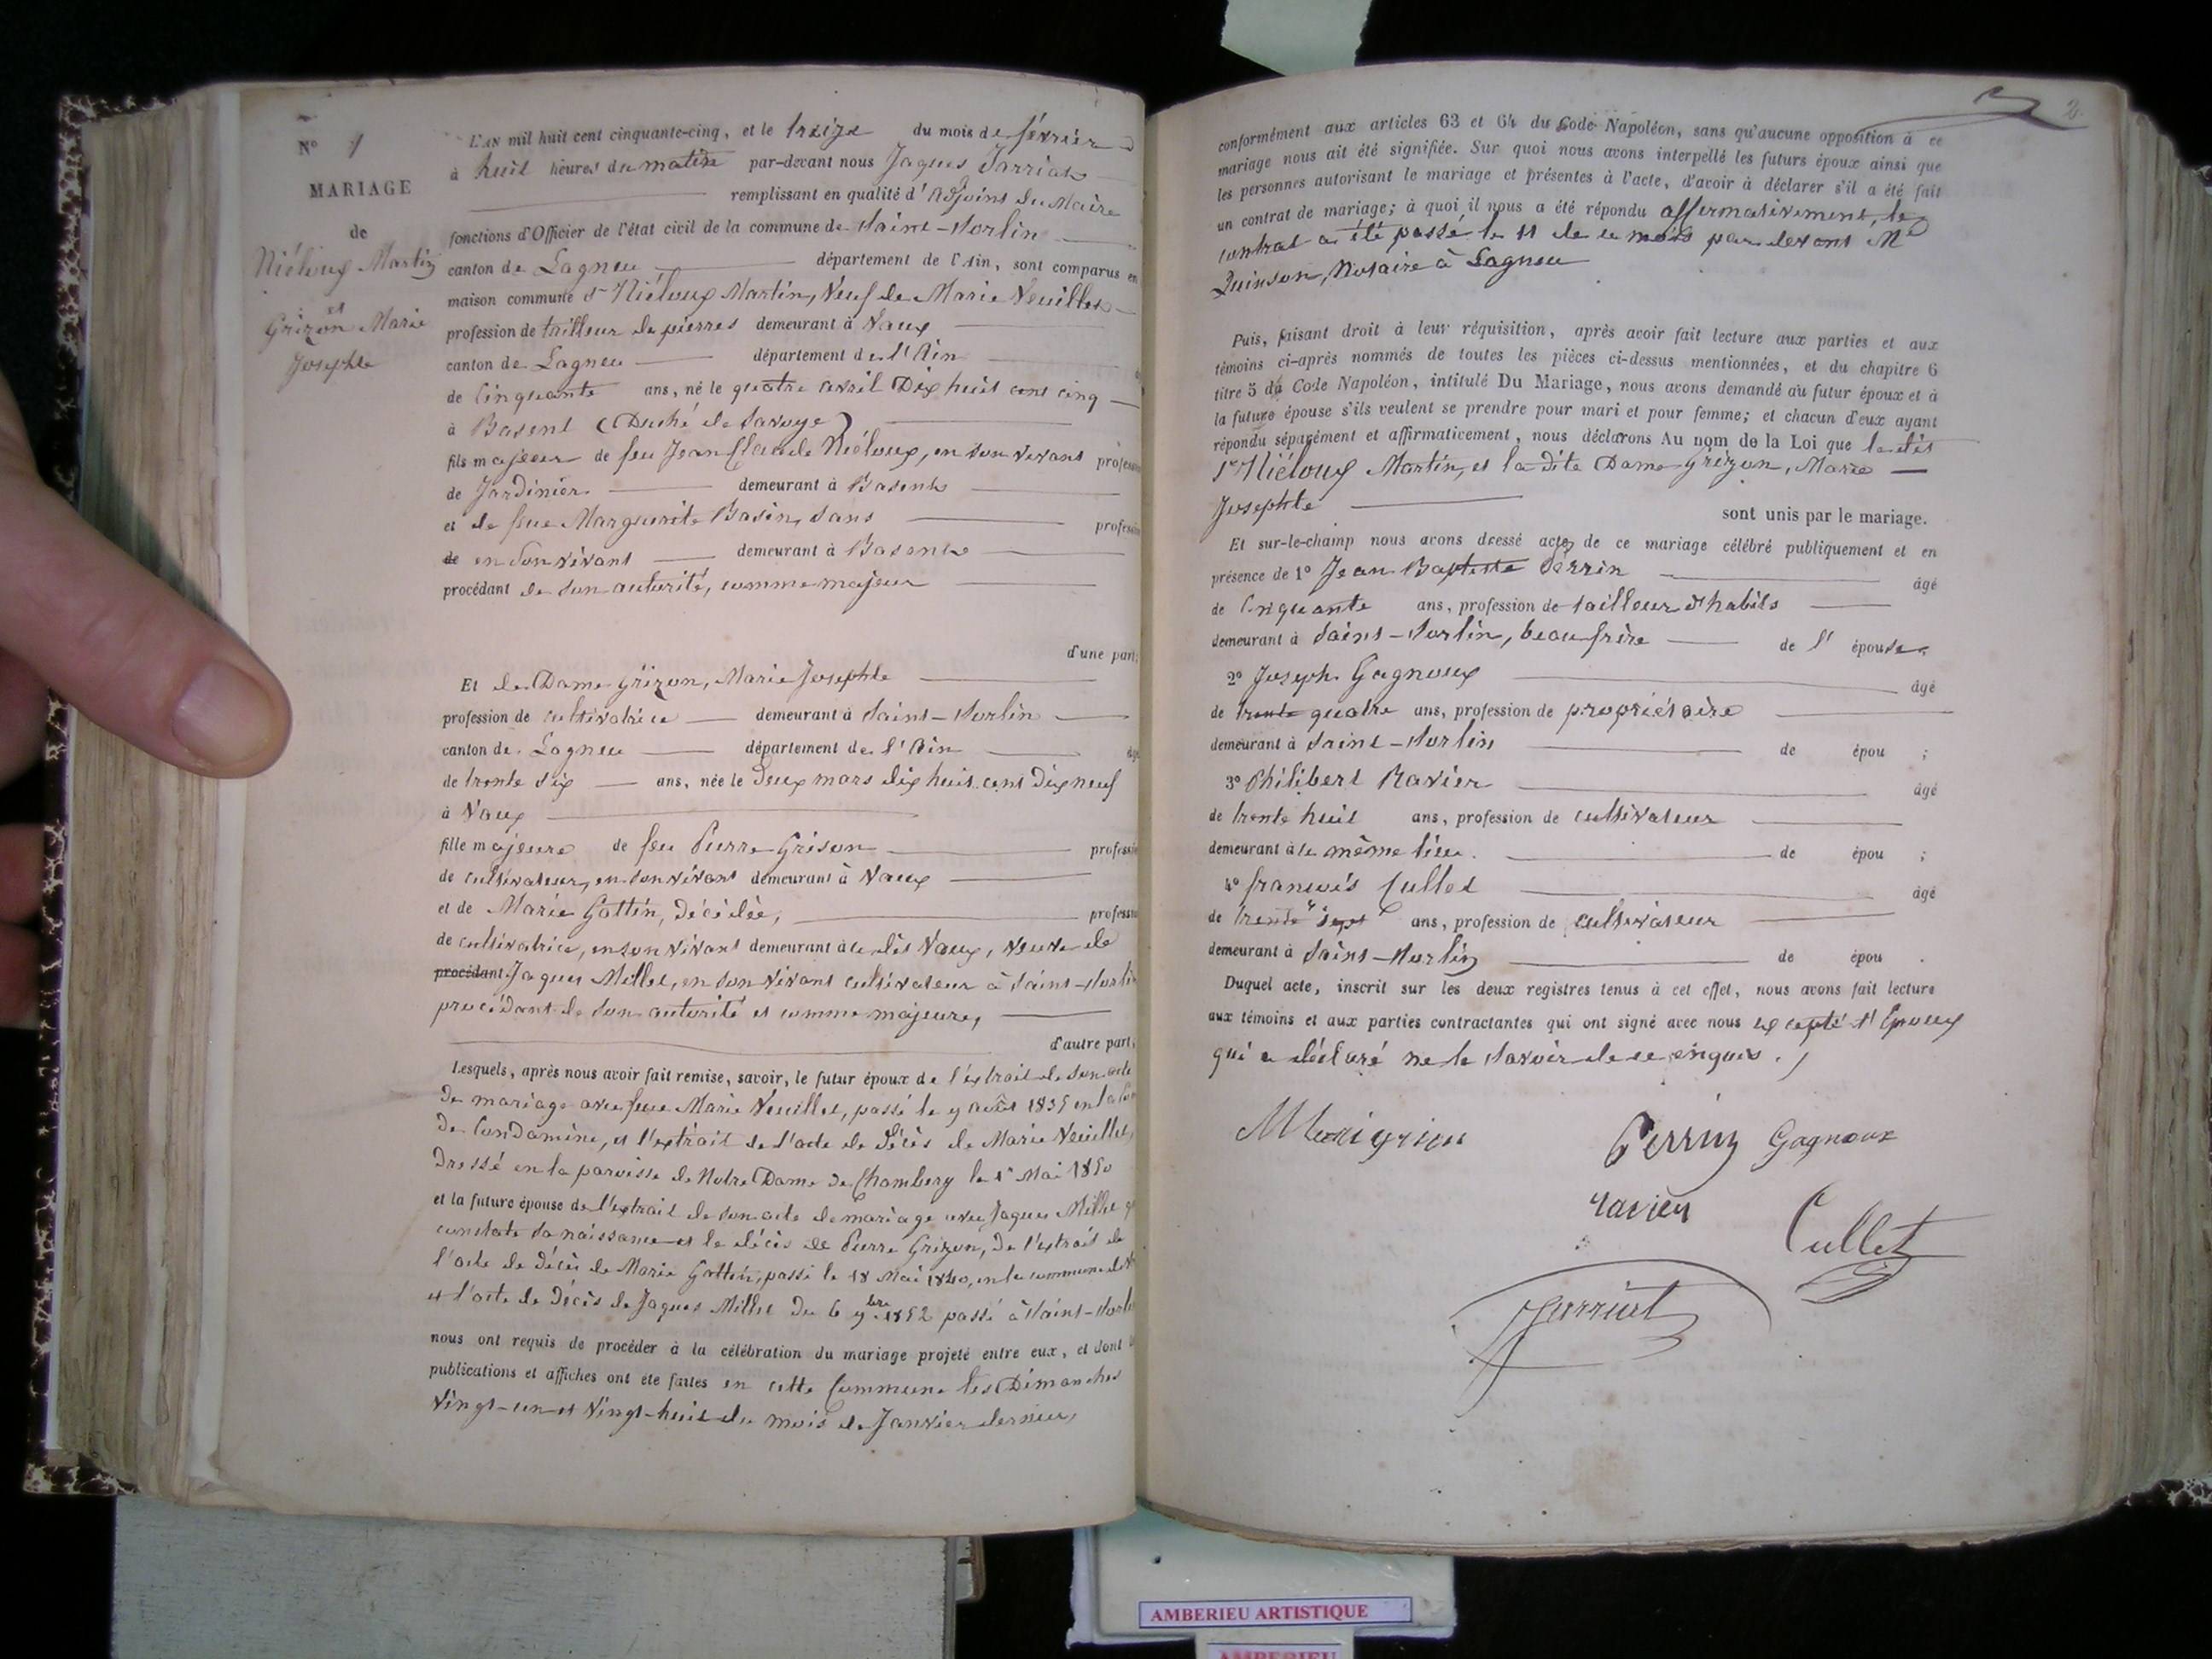 N° 1
MARIAGE
de
Niéloux Martin
et
Grizon Marie
Josephte
L'AN mil huit cent cinquante-cinq, et le treize du mois de février
à huit heures du matin par-devant nous Jaques Jarriat
remplissant en qualité d'Adjoint du Maire
fonctions d'Officier de l'état civil de la commune de Saint-Sorlin
canton de Lagneu département de l'Ain, sont comparus en
maison commune Sr Niéloux Martin, Veuf de Marie Veuillet
profession de tailleur de pierres demeurant à Vaux
canton de Lagneu département de l'Ain
de Cinquante ans, né le quatre avril Dix huit cent cinq
à Basent (Duché de Savoye)
fils majeur de feu Jean Claude Niéloux, en son vivant profession
de Jardinier demeurant à Basent
et de feue Marguerite Basin, sans profession
de en son vivant demeurant à Basent
procédant de son autorité, comme majeur
d'une part;
Et de Dame Grizon, Marie Josephte
profession de cultivatrice demeurant à Saint-Sorlin
canton de Lagneu département de l'Ain âgé
de trente six ans, née le Deux mars dix huit cent Dix neuf
à Vaux
fille majeure de feu Pierre Grison profession
de cultivateur, en son vivant demeurant à Vaux
et de Marie Gottin, décédée, profession
de cultivatrice, en son vivant demeurant à le dit Vaux, veuve de
procédant Jaques Millet, en son vivant cultivateur à Saint-Sorlin
procédant de son autorité et comme majeure,
d'autre part;
Lesquels, après nous avoir fait remise, savoir, le futur époux de l'extrait de son acte
de mariage avec feue Marie Veuillet, passé le 9 août 1835 en la
de Condamine, et l'extrait de l'acte de décès de Marie Veuillet,
Dressé en la paroisse de Notre Dame de Chambery le 1r Mai 1850
et la future épouse de l'extrait de son acte de mariage avec Jaques Millet
constate sa naissance et le décès de Pierre Grizon, de l'extrait de
l'acte de décès de Marie Gottin, passé le 18 Mai 1840, en la commune de
et l'acte de décès de Jaques Millet du 6 9bre 1852 passé à Saint-Sorlin
nous ont requis de procéder à la célébration du mariage projeté entre eux, et dont
publications et affiches ont été faites en cette Commune les Dimanches
Vingt-un et Vingt-huit du mois de Janvier dernier,
2
conformément aux articles 63 et 64 du Code Napoléon, sans qu'aucune opposition à ce
mariage nous ait été signifiée. Sur quoi nous avons interpellé les futurs époux ainsi que
les personnes autorisant le mariage et présentes à l'acte, d'avoir à déclarer s'il a été fait
un contrat de mariage; à quoi il nous a été répondu affirmativement, le
contrat a été passé le 11 de ce mois par devant Me
Quinson, Notaire à Lagneu
Puis, faisant droit à leur réquisition, après avoir fait lecture aux parties et aux
témoins ci-après nommés de toutes les pièces ci-dessus mentionnées, et du chapitre 6
titre 5 du Code Napoléon, intitulé Du Mariage, nous avons demandé au futur époux et à
la future épouse s'ils veulent se prendre pour mari et pour femme; et chacun d'eux ayant
répondu séparément et affirmativement, nous déclarons Au nom de la Loi que le dit
Sr Niéloux Martin, et la dite Dame Grizon, Marie
Josephte
sont unis par le mariage.
Et sur-le-champ nous avons dressé acte, de ce mariage célébré publiquement et en
présence de 1° Jean Baptiste Perrin âgé
de Cinquante ans, profession de tailleur d'habits
demeurant à Saint-Sorlin, beau frère de l' épouse
2° Joseph Gagnoux âgé
de trente quatre ans, profession de propriétaire
demeurant à Saint-Sorlin de épou ;
3° Philibert Ravier âgé
de trente huit ans, profession de cultivateur
demeurant à le même lieu. de épou ;
4° François Cullet âgé
de trente sept ans, profession de cultivateur
demeurant à Saint-Sorlin de épou .
Duquel acte, inscrit sur les deux registres tenus à cet effet, nous avons fait lecture
aux témoins et aux parties contractantes qui ont signé avec nous excepté l'Epoux
qui a déclaré ne le savoir de ce enquis.
Perrin Gagnoux
ravier
Cullet
Jarriat
AMBERIEU ARTISTIQUE
AMBERIEU